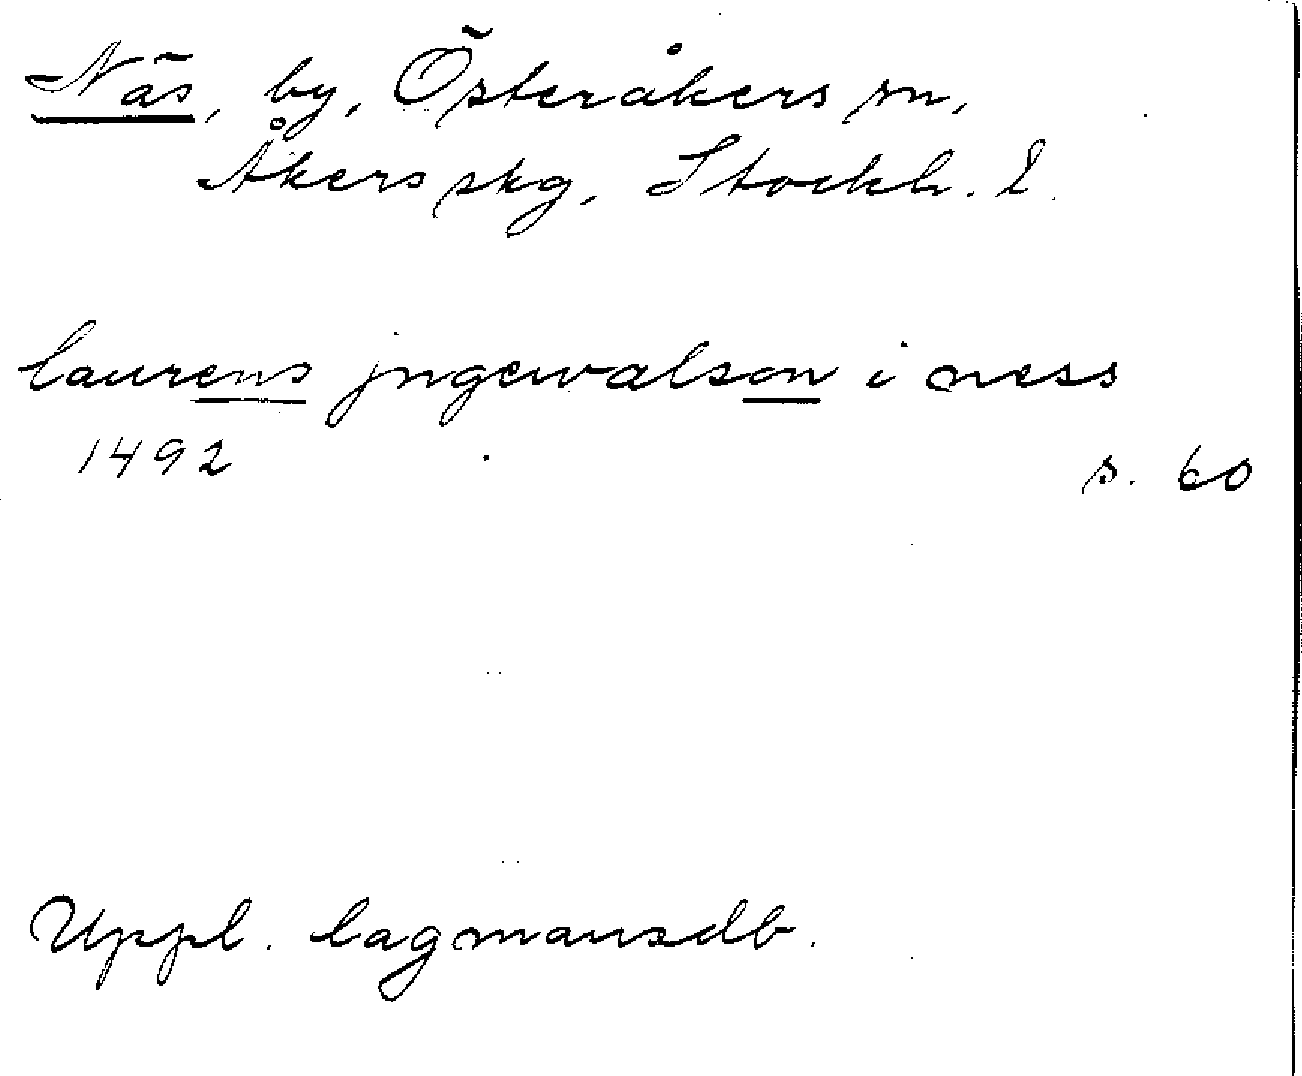 Näs, by, Österåkers sn,
Åkers skg, Stockh. l.
laurens jngewalson i ness
1492 s. 60
Uppl. lagmansdb.